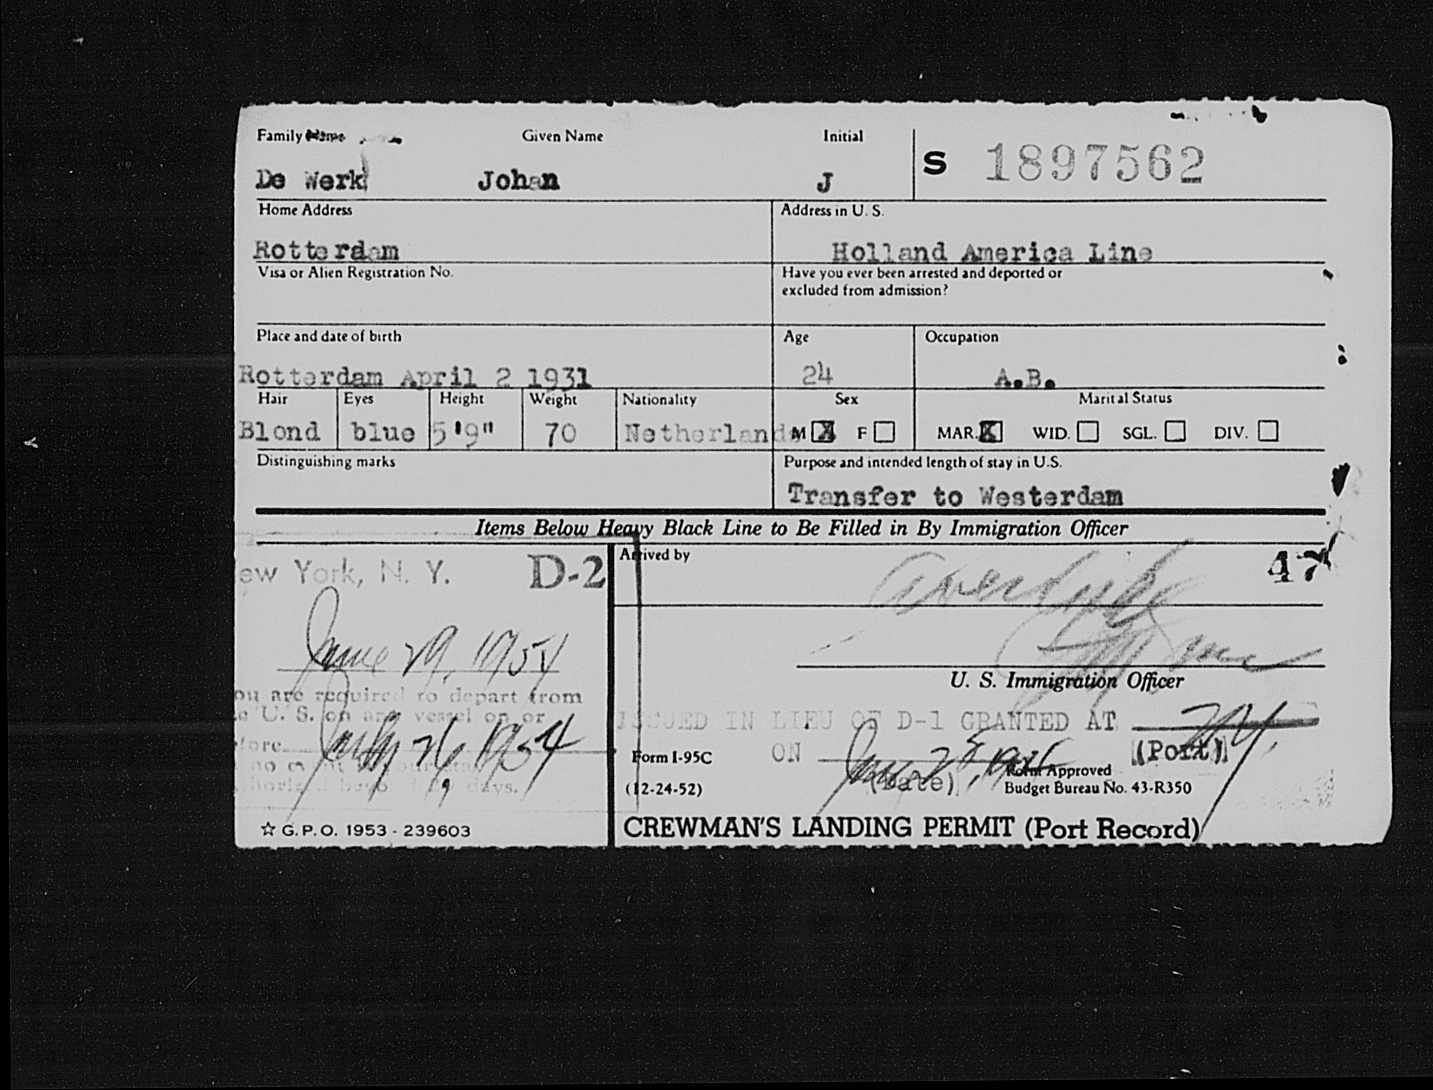 Family Name Given Name Initial
De Werk Johan J S 1897562
Home Address Address in U. S.
Rotterdam Holland America Line
Visa or Alien Registration No. Have you ever been arrested and deported or
excluded from admission?
Place and date of birth Age Occupation
Rotterdam April 2 1931 24 A.B.
Hair Eyes Height Weight Nationality Sex Marital Status
Blond blue 5'9" 70 Netherlands M X F MAR. X WID. SGL. DIV.
Distinguishing marks Purpose and intended length of stay in U.S.
Transfer to Westerdam
Items Below Heavy Black Line to Be Filled in By Immigration Officer
Arrived by
ew York, N. Y. D-2 47
June 29, 1954
U. S. Immigration Officer
ou are required to depart from
U. S. on any vessel on or
ISSUED IN LIEU OF D-1 GRANTED AT N.Y.
July 26, 1954
ON June (Port)
Form I-95C (Date) Form Approved
(12-24-52) Budget Bureau No. 43-R350
days.
☆ G.P.O. 1953 - 239603 CREWMAN'S LANDING PERMIT (Port Record)